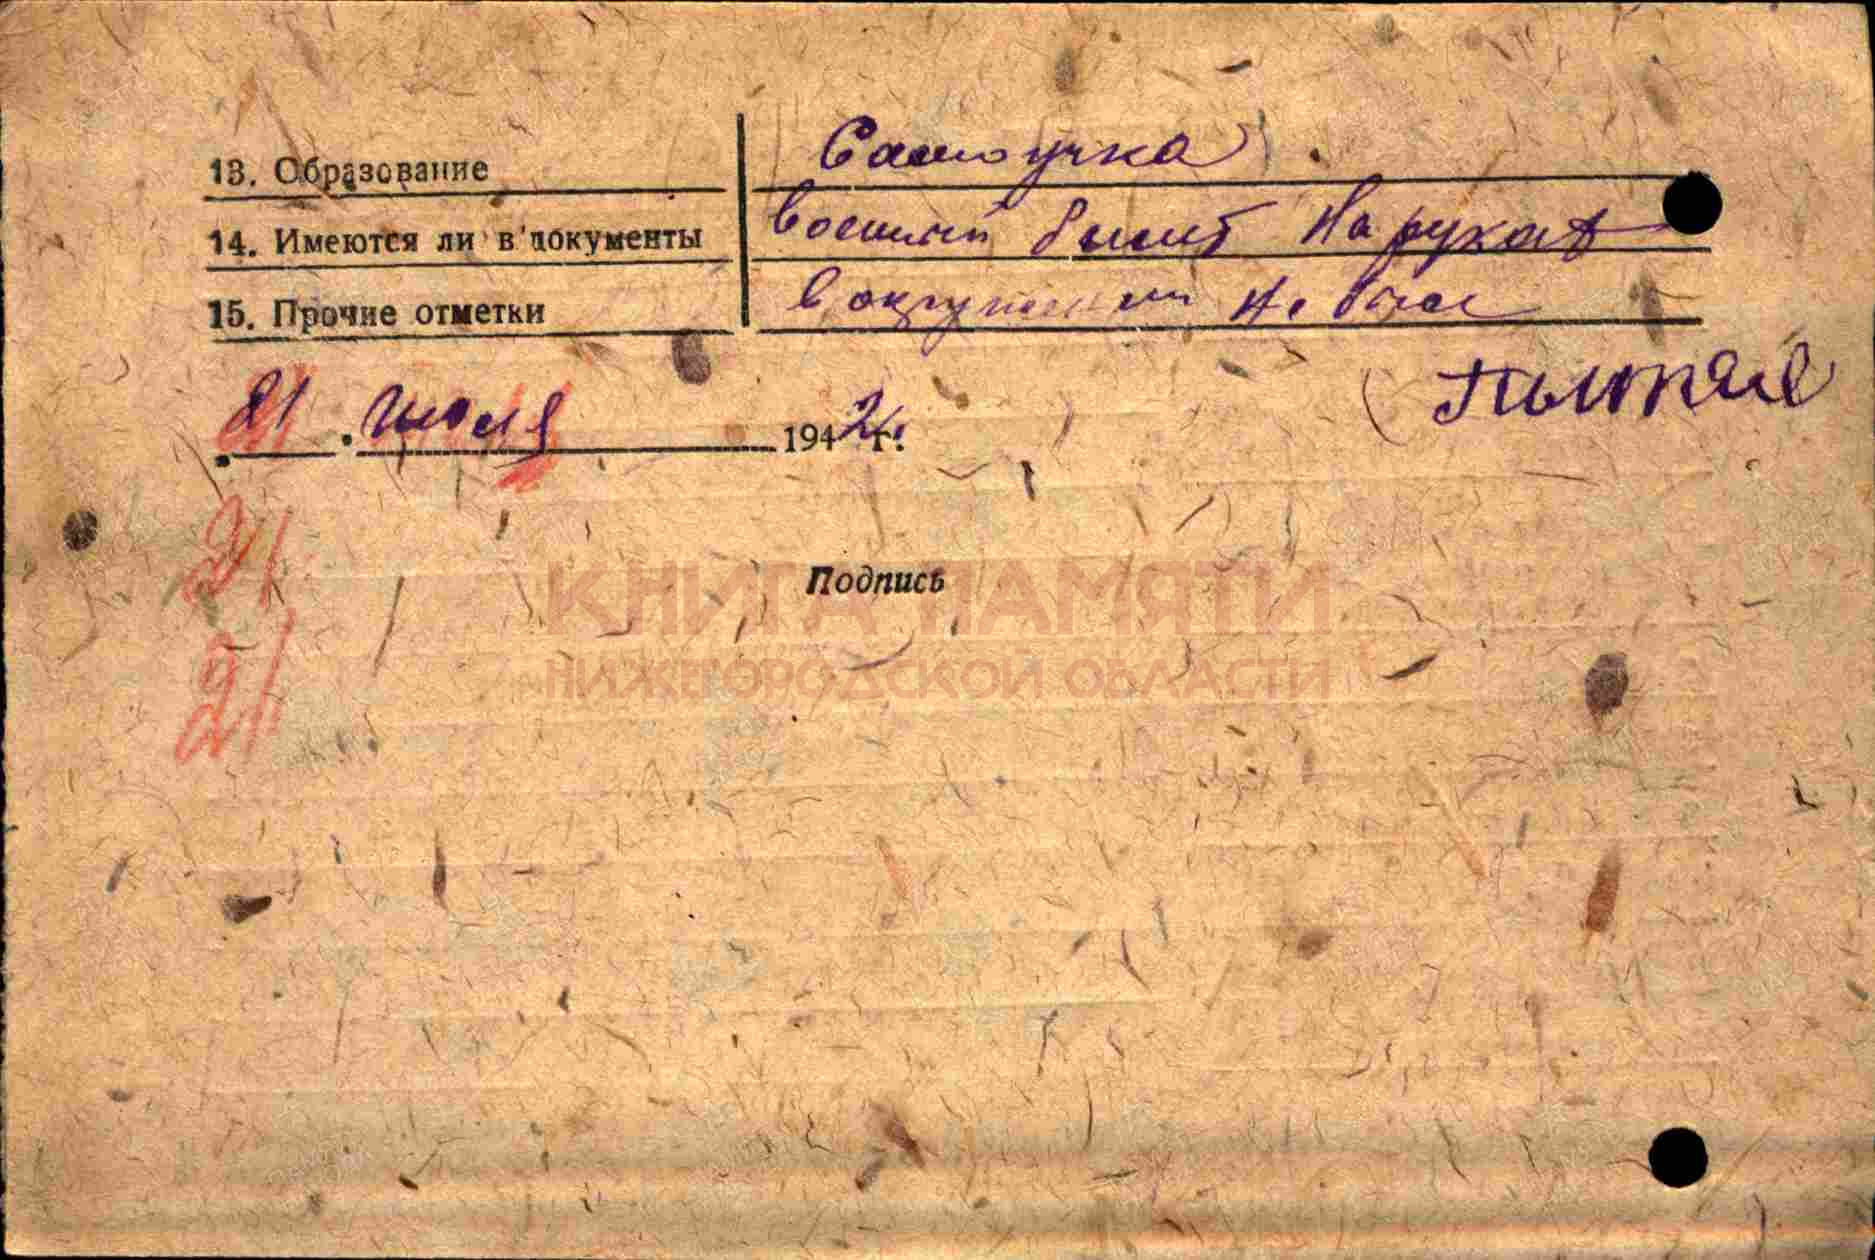 13. Образование Самоучка
14. Имеются ли в документы военный билет На руках
15. Прочие отметки В окружении Не был
21 июля 1942 г.
21
21
Подпись
КНИГА ПАМЯТИ
НИЖЕГОРОДСКОЙ ОБЛАСТИ